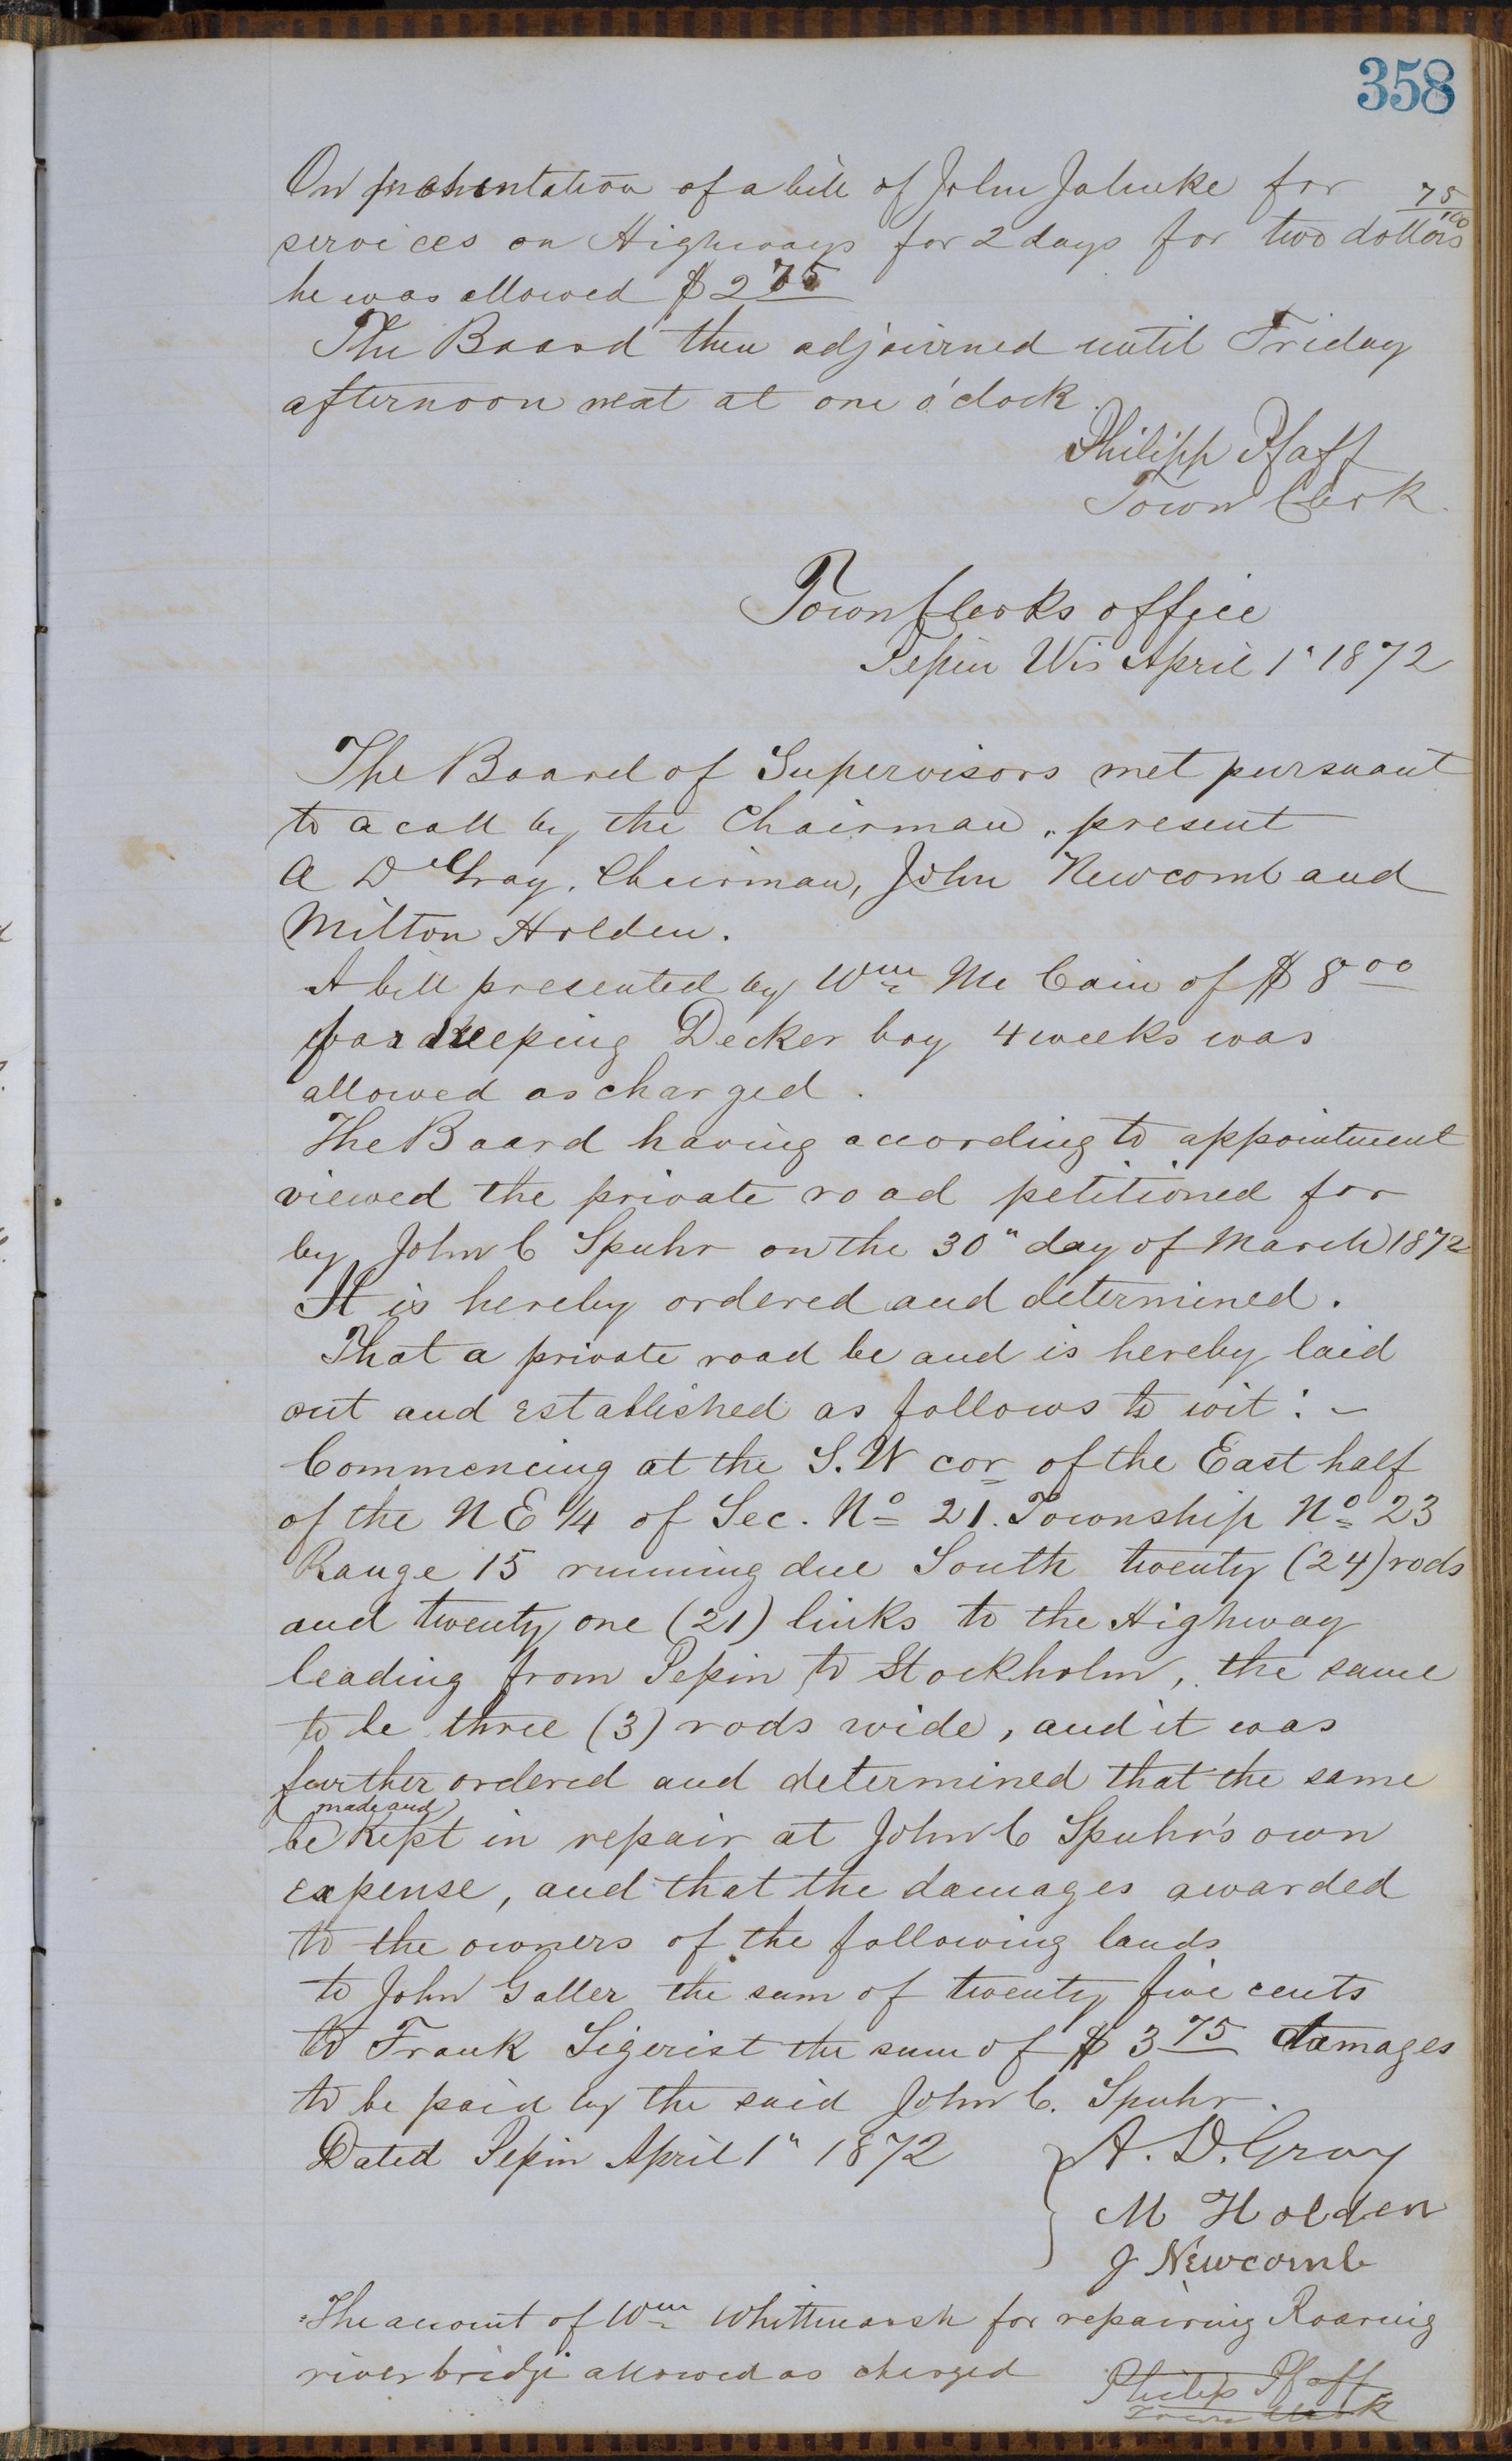 358
On presentation of a bill of John Jahnke for 75/100
services on Highways for 2 days for two dollars
he was allowed $ 2 75
The Board then adjourned until Friday
afternoon next at one o'clock.
Philipp Pfaff
Town Clerk.
Town Clerks office
Pepin Wis April 1" 1872
The Board of Supervisors met pursuant
to a call by the Chairman, present
A D Gray, Chairman, John Newcomb and
Milton Holden.
A bill presented by Wm Mc Cain of $ 8 00
for keeping Decker boy 4 weeks was
allowed as charged.
The Board having according to appointment
viewed the private road petitioned for
by John C Spuhr on the 30" day of March 1872
It is hereby ordered and determined.
That a private road be and is hereby laid
out and established as follows to wit: -
Commencing at the S.W cor of the East half
of the N E 1/4 of Sec. No 21. Township No 23
Range 15 running due South twenty (24) rods
and twenty one (21) links to the Highway
leading from Pepin to Stockholm, the same
to be three (3) rods wide, and it was
further ordered and determined that the same
made and
be kept in repair at John C Spuhr's own
expense, and that the damages awarded
to the owners of the following lands
to John Galler the sum of twenty five cents
to Frank Sigerist the sum of $ 3 75 damages
to be paid by the said John C. Spuhr.
Dated Pepin April 1" 1872 A. D. Gray
M Holden
J Newcomb
The account of Wm Whittmarsh for repairing Roaring
river bridge allowed as charged Philip Pfaff
Town Clerk